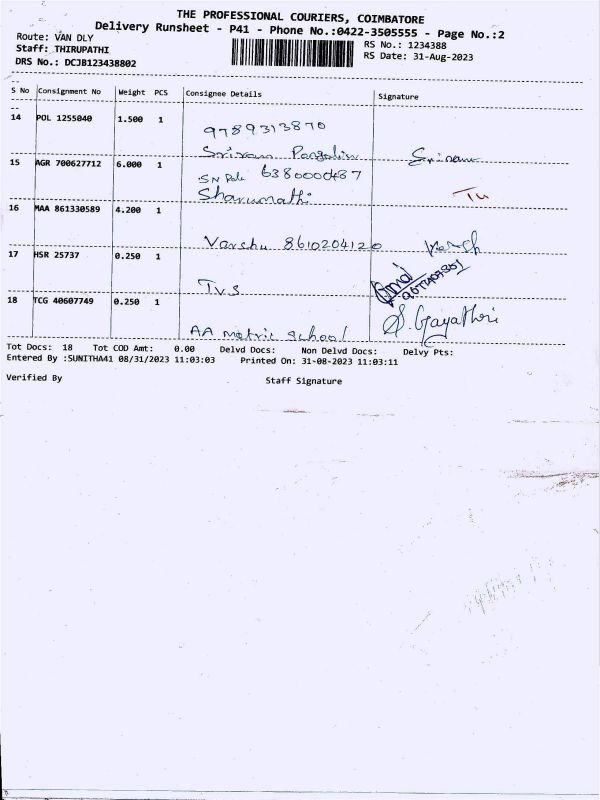 THE PROFESSIONAL COURIERS, COIMBATORE
Delivery Runsheet - P41 - Phone No.:0422-3505555 - Page No.:2
Route: VAN DLY
RS No.: 1234388
Staff: THIRUPATHI
RS Date: 31-Aug-2023
DRS No.: DCJB123438802
S No Consignment No Weight PCS Consignee Details Signature
14 POL 1255040 1.500 1 9789313870
Sriram Sriram
15 AGR 700627712 6.000 1 SN Pale 6380000487
Sharumathi
16 MAA 861330589 4.200 1
Varshu 8610204120
17 HSR 25737 0.250 1
TVS
18 TCG 40607749 0.250 1 S. Gayathri
AA matric school
Tot Docs: 18 Tot COD Amt: 0.00 Delvd Docs: Non Delvd Docs: Delvy Pts:
Entered By :SUNITHA41 08/31/2023 11:03:03 Printed On: 31-08-2023 11:03:11
Verified By Staff Signature